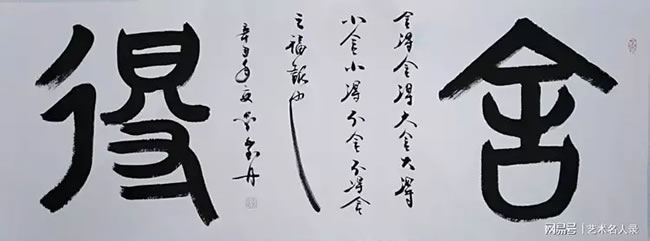 舍
舍得舍得大舍大得
小舍小得不舍不得舍
之福報也
辛丑年夏丹
得
网易号 | 艺术名人录